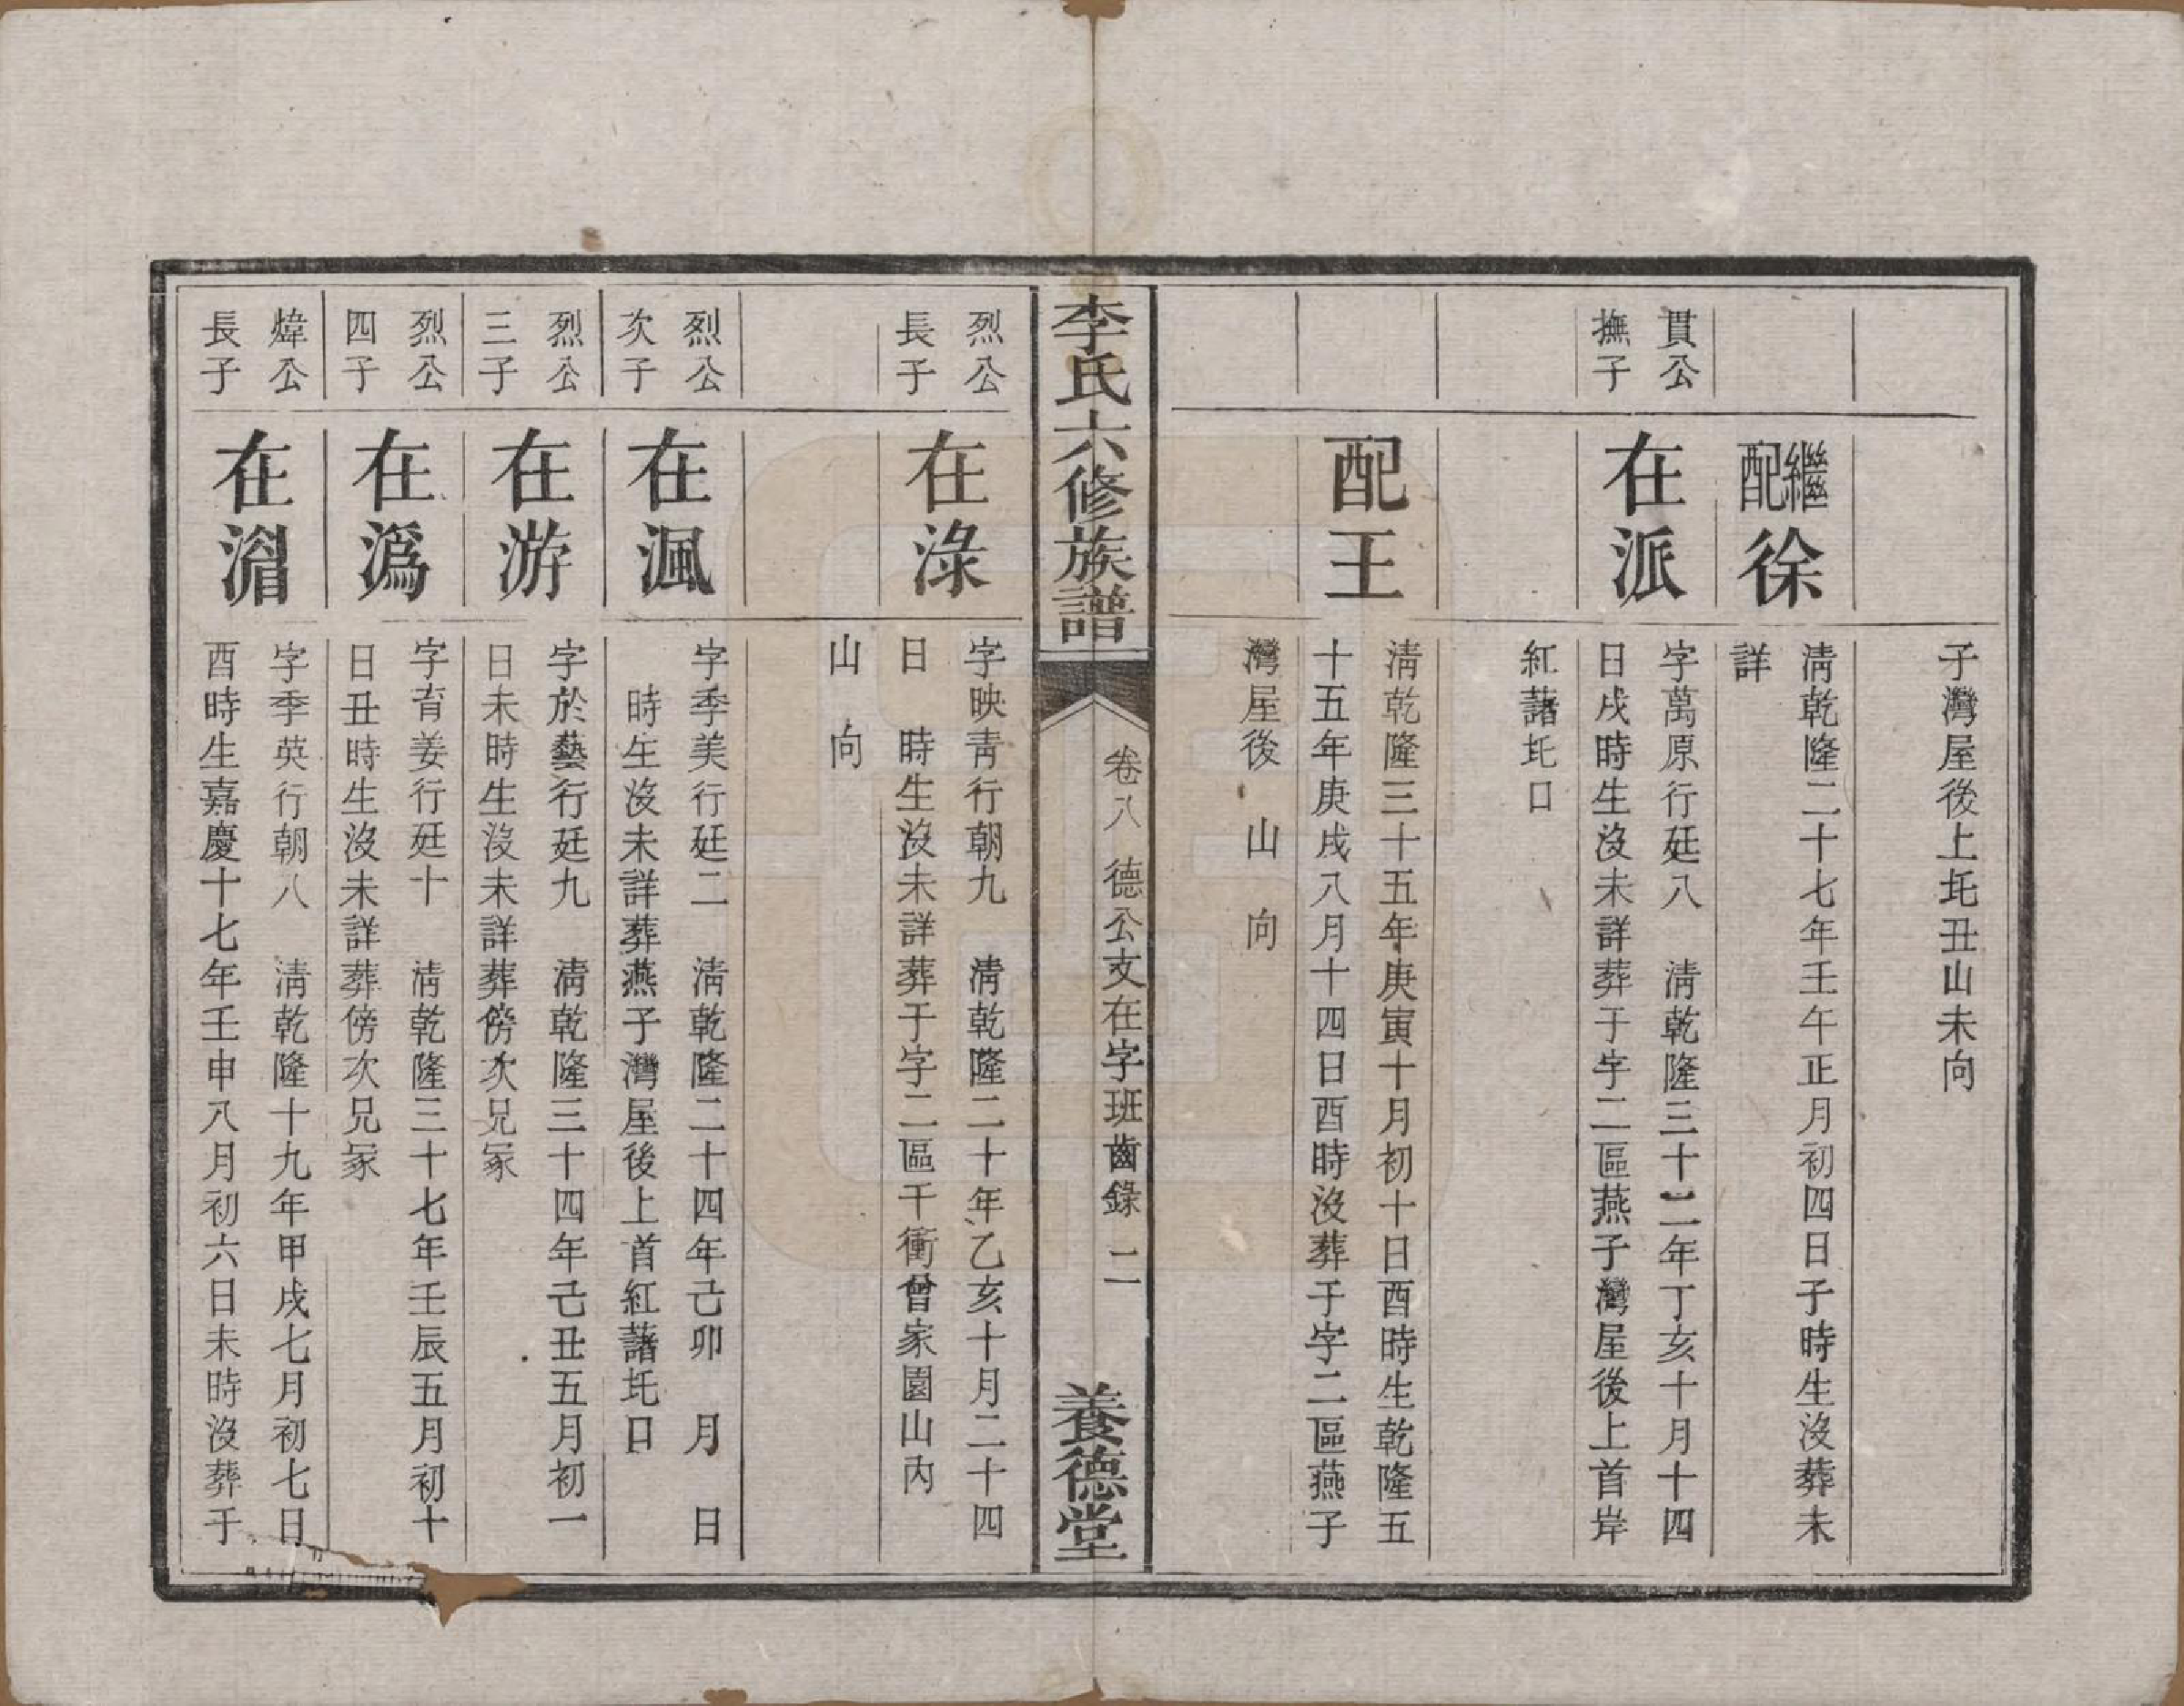 子灣屋後上坉丑山未向
繼配徐
清乾隆二十七年壬午正月初四日子時生沒葬未
詳
貫公
撫子
在派
字萬原行廷八 清乾隆三十二年丁亥十月十四
日戌時生沒未詳葬于字二區燕子灣屋後上首岸
紅藷坉口
配王
清乾隆三十五年庚寅十月初十日酉時生乾隆五
十五年庚戌八月十四日酉時沒葬于字二區燕子
灣屋後 山 向
李氏六修族譜
卷八 德公支在字班齒錄 二
養德堂
烈公
長子
在淥
字映青行朝九 清乾隆二十年乙亥十月二十四
日 時生沒未詳葬于字二區干衝曾家園山內
山 向
烈公
次子
在渢
字季美行廷二 清乾隆二十四年己卯 月 日
時生沒未詳葬燕子灣屋後上首紅藷坉口
烈公
三子
在游
字於藝行廷九 清乾隆三十四年己丑五月初一
日未時生沒未詳葬傍次兄冢
烈公
四子
在潙
字育姜行廷十 清乾隆三十七年壬辰五月初十
日丑時生沒未詳葬傍次兄冢
煒公
長子
在湽
字季英行朝八 清乾隆十九年甲戌七月初七日
酉時生嘉慶十七年壬申八月初六日未時沒葬于